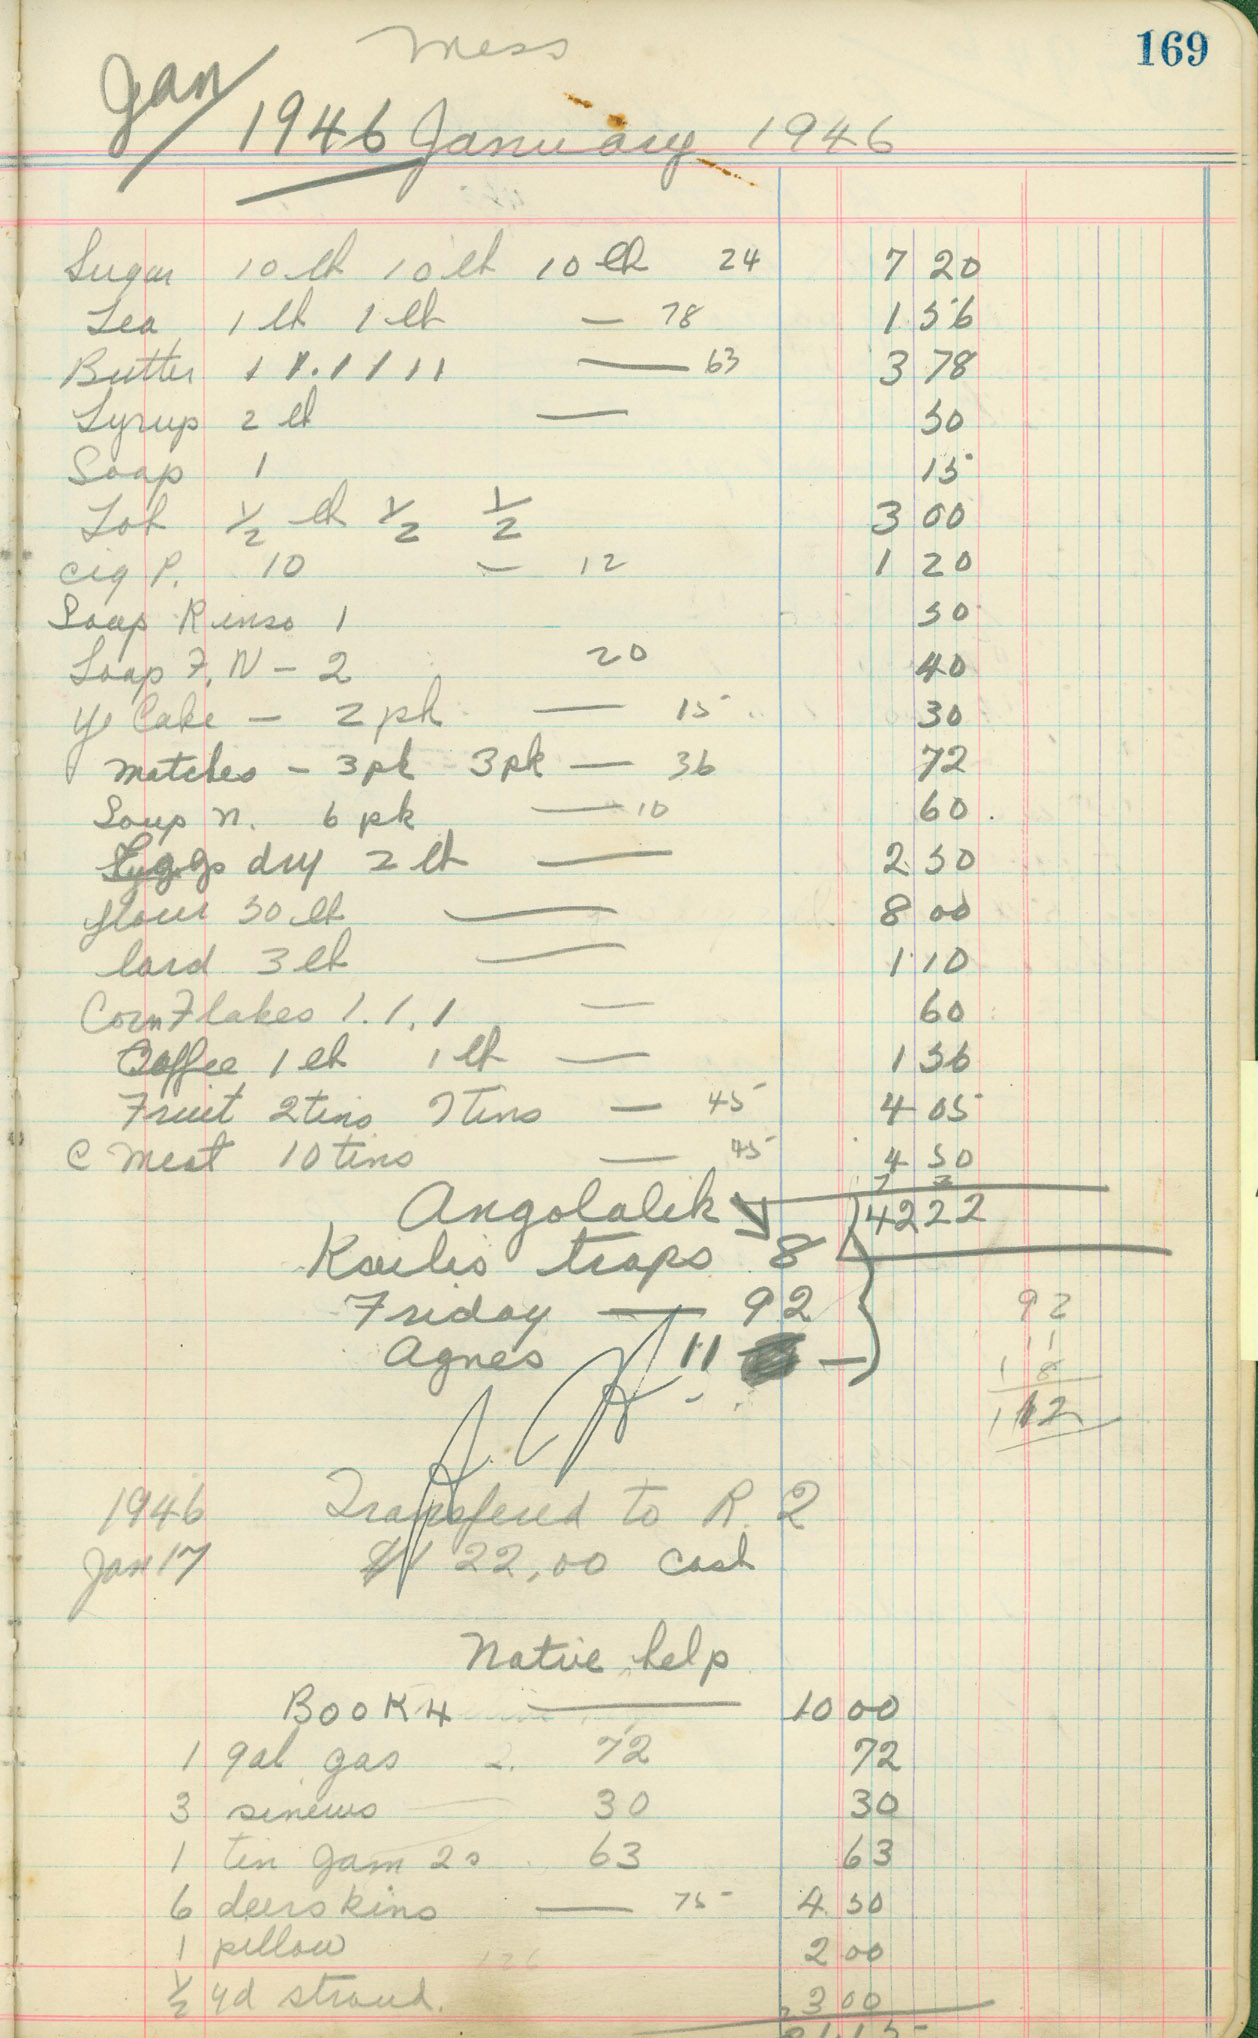 169
Mess
Jan
1946 January 1946
Sugar 10 lb 10 lb 10 lb 24 7 20
Tea 1 lb 1 lb — 78 1 56
Butter 1 1 . 1 1 1 1 — 63 3 78
Syrup 2 lb — 50
Soap 1 15
Tob ½ lb ½ ½ 3 00
Cig P. 10 — 12 1 20
Soap Rinso 1 50
Soap F. N — 2 20 40
Ye Cake — 2 pk — 15 30
matches — 3 pk 3 pk — 36 72
Soup n. 6 pk — 10 60
Eggs dry 2 lb — 2 50
flour 50 lb — 8 00
lard 3 lb — 1 10
Corn Flakes 1. 1, 1 — 60
Coffee 1 lb 1 lb — 1 56
Fruit 2 tins 7 tins — 45 4 05
C meat 10 tins — 45 4 50
7 2
Angolalik 4222
traps 8
Friday — 92 92
Agnes 11 — 11
1 8
112
1946 Transfered to R. 2
Jan 17 22,00 cash
Native help
BOOK 4 — 10 00
1 gal gas 72 72
3 sinews 30 30
1 tin Jam 2s 63 63
6 deerskins — 75 4 50
1 pillow 2 00
½ yd stroud. 3 00